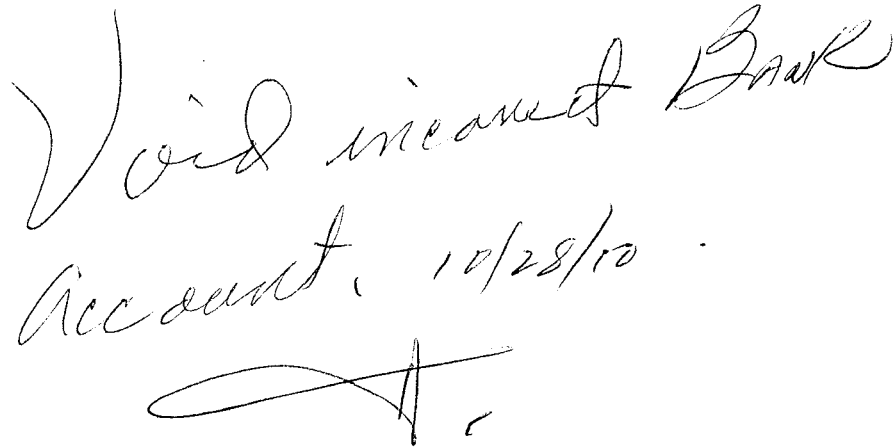 Void incorrect Bank
Account, 10/28/10.